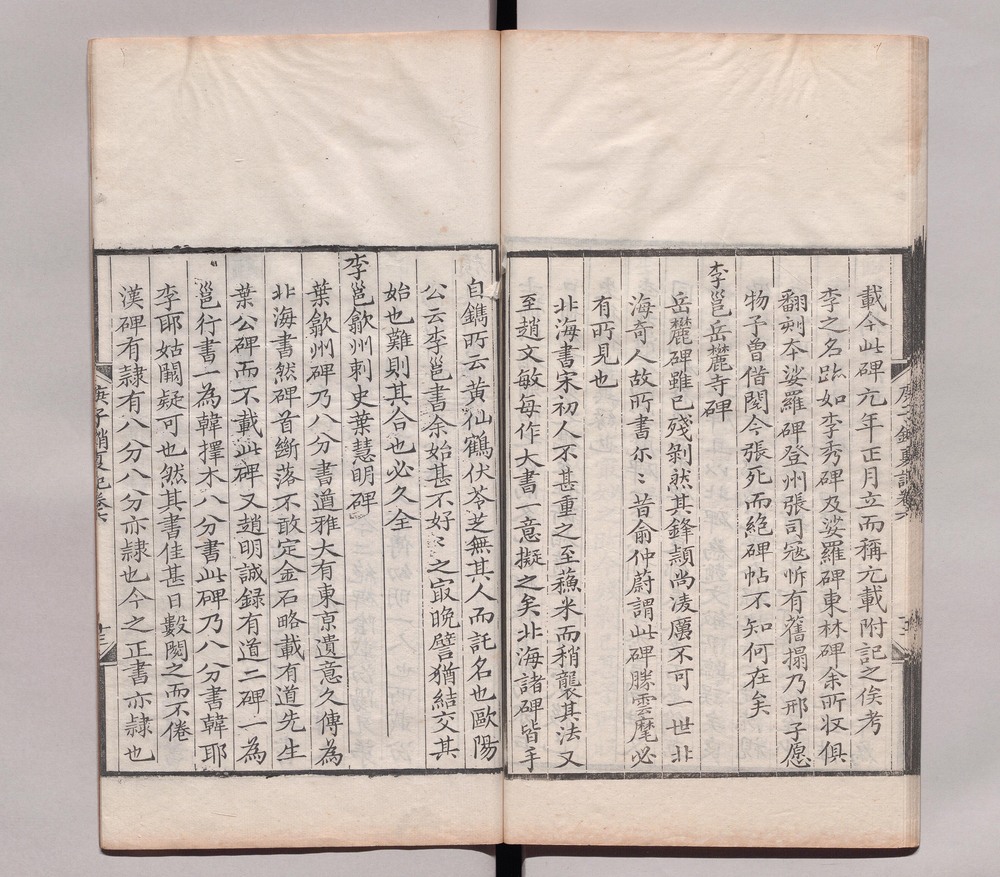 載今此碑元年正月立而稱元載附記之俟考
李之名跡如李秀碑及娑羅碑東林碑余所収俱
翻刻本娑羅碑登州張司㓂忻有舊搨乃邢子愿
物予曽借閱今張死而絕碑帖不知何在矣
李邕岳麓寺碑
岳麓碑雖已殘剝然其鋒頴尚凌厲不可一世北
海奇人故所書尓〻昔俞仲蔚謂此碑勝雲麾必
有所見也
北海書宋初人不甚重之至蘓米而稍襲其法又
至趙文敏每作大書一意擬之矣北海諸碑皆手
自鐫所云黃仙鶴伏苓芝無其人而託名也歐陽
公云李邕書余始甚不好〻之㝡晚譬猶結交其
始也難則其合也必久全
李邕歙州刺史葉慧明碑
葉歙州碑乃八分書遒雅大有東京遺意久傳為
北海書然碑首斷落不敢定金石略載有道先生
葉公碑而不載此碑又趙明誠録有道二碑一為
邕行書一為韓擇木八分書此碑乃八分書韓耶
李耶姑闕疑可也然其書佳甚日數閱之而不倦
漢碑有隷有八分八分亦隷也今之正書亦隷也
庚子銷夏記卷六